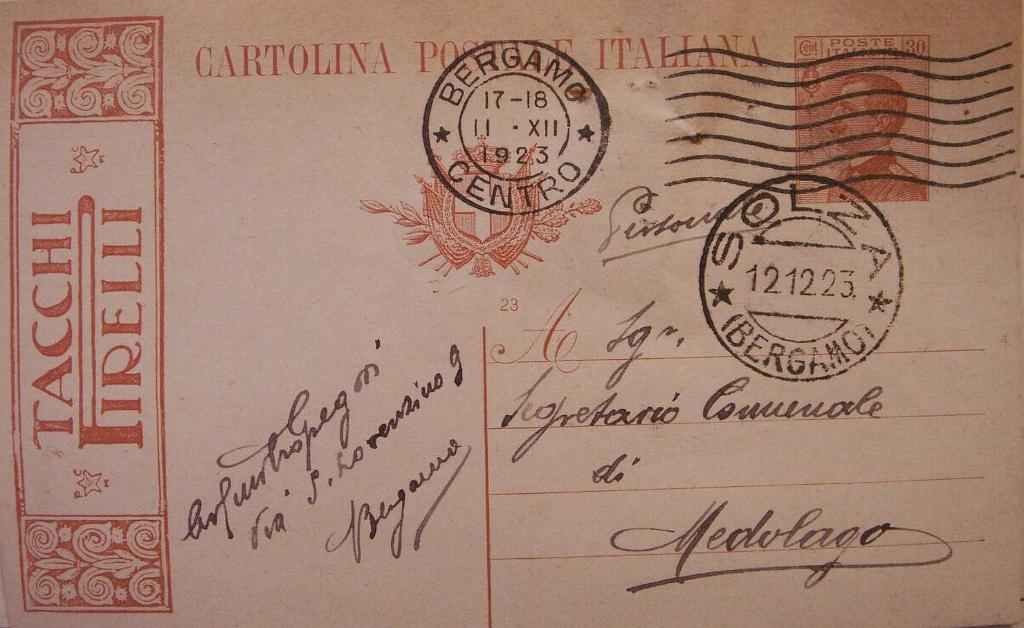 CARTOLINA POSTALE ITALIANA
Cent POSTE 30
ITALIANE
BERGAMO
17-18
11 · XII
1923
CENTRO
TACCHI
PIRELLI
SOLZA
12.12.23.
(BERGAMO)
23
A Sgr.
Segretario Comunale
di
Medolago
Via S. Lorenzino 9
Bergamo